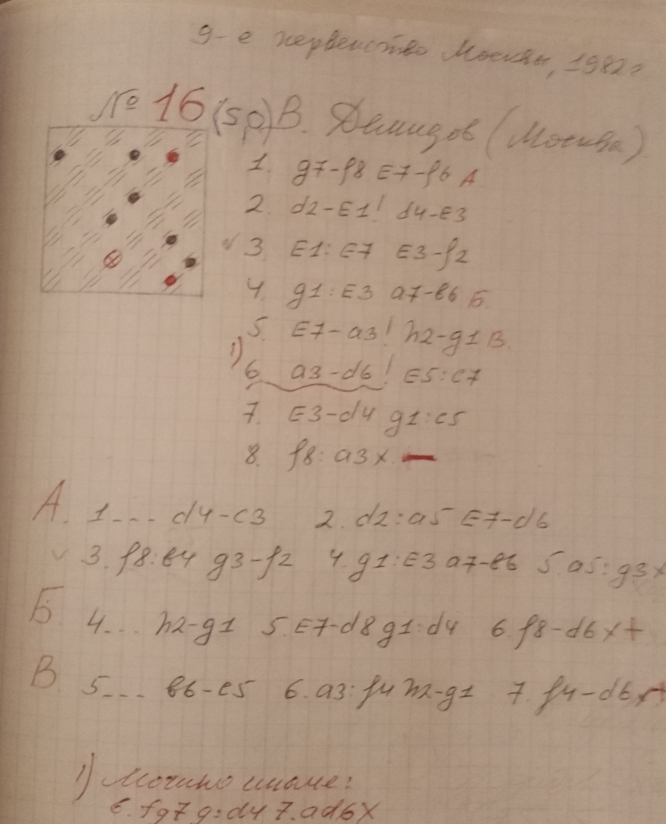 9-е первенство Москвы, 1982г
№ 16 (sp) В. Демидов (Москва)
1. g7-f8 E7-f6 А
2. d2-E1! d4-E3
v 3. E1:E7 E3-f2
4. g1:E3 a7-в6 Б
5. E7-a3! h2-g1 В
1) 6. a3-d6! E5:c7
7. E3-d4 g1:c5
8. f8:a3x –
А. 1... d4-c3 2. d2:a5 E7-d6
v 3. f8:в4 g3-f2 4. g1:E3 a7-в6 5. a5:g3x
Б 4... h2-g1 5. E7-d8 g1:d4 6. f8-d6x+
В 5... в6-c5 6. a3:f4 h2-g1 7. f4-d6x+
1) Можно иначе:
6. fg7 g:d4 7. ad6X